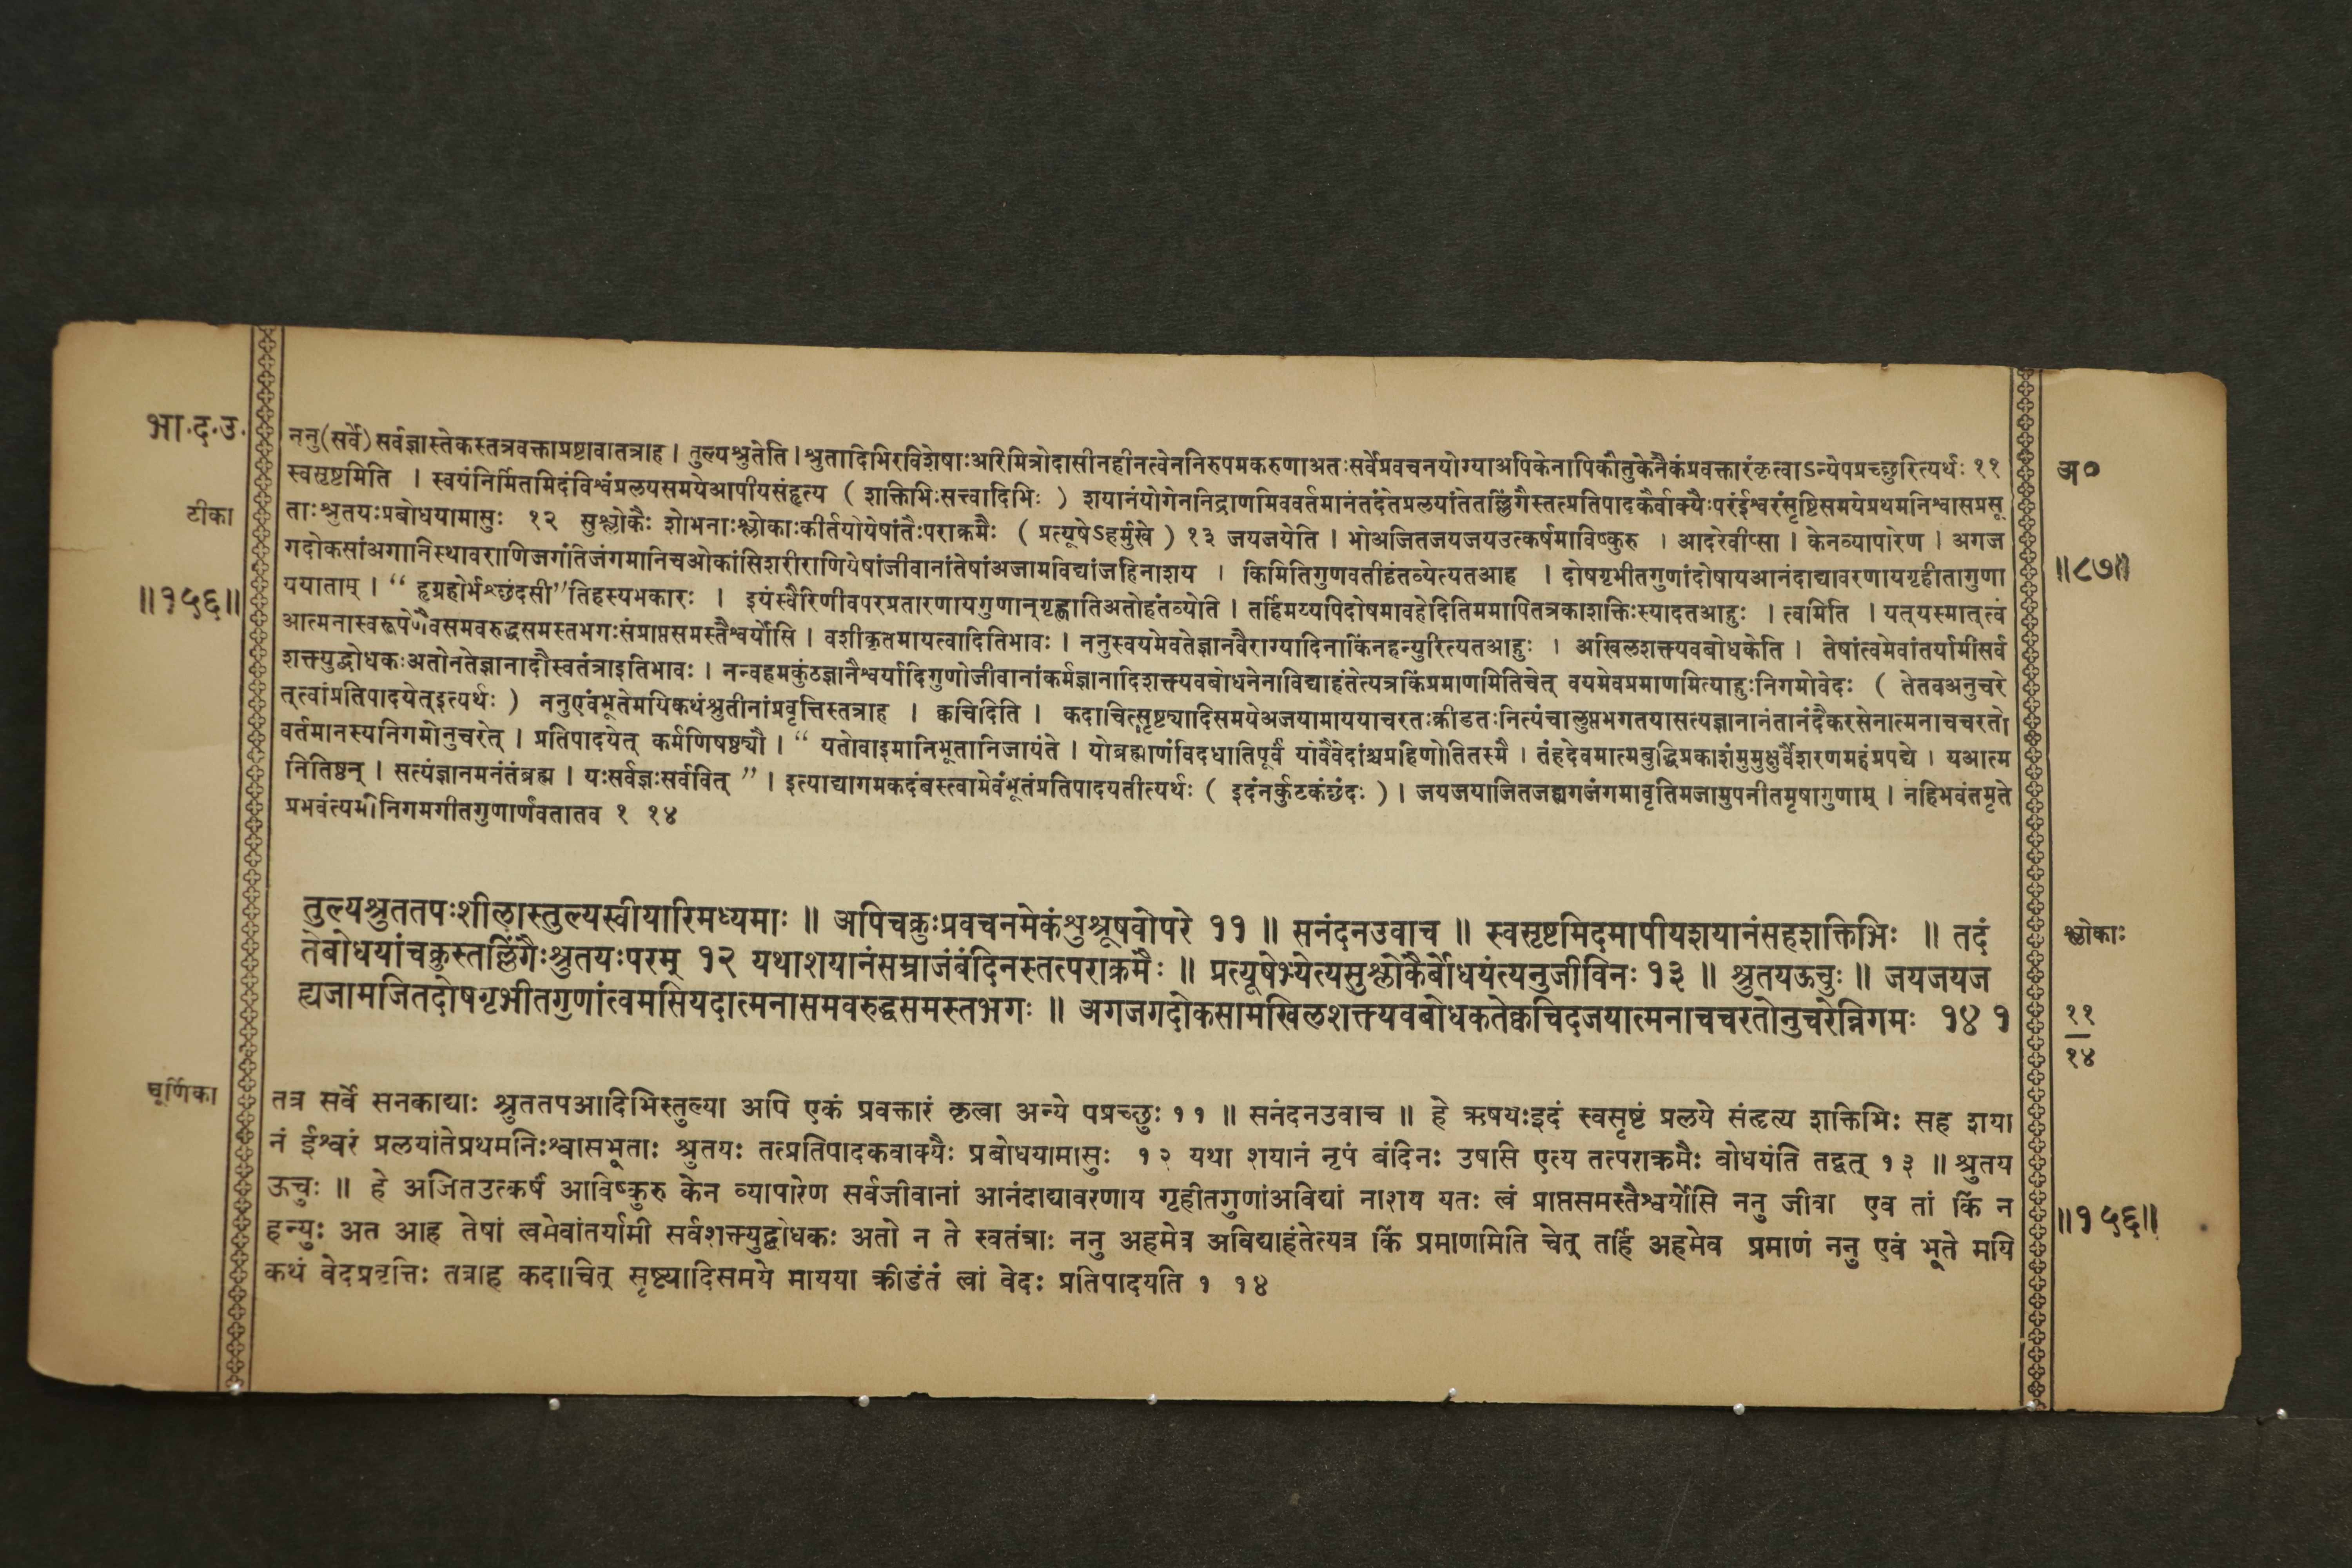 भा.द.उ.
टीका
॥१५६॥
ननु(सर्वे)सर्वज्ञास्तेकस्तत्रवक्ताप्रष्टावातत्राह । तुल्यश्रुतेति । श्रुतादिभिरविशेषाःअरिमित्रोदासीनहीनत्वेननिरुपमकरुणाअतःसर्वेप्रवचनयोग्याअपिकेनापिकौतुकेनैकंप्रवक्तारंकृत्वाऽन्येपप्रच्छुरित्यर्थः ११
स्वसृष्टमिति । स्वयंनिर्मितमिदंविश्वंप्रलयसमयेआपीयसंहृत्य ( शक्तिभिःसत्त्वादिभिः ) शयानंयोगेननिद्राणमिववर्तमानंतदंतेप्रलयांतेतल्लिंगैस्तत्प्रतिपादकैर्वाक्यैःपरंईश्वरंसृष्टिसमयेप्रथमनिश्वासप्रसू
ताःश्रुतयःप्रबोधयामासुः १२ सुश्लोकैः शोभनाःश्लोकाःकीर्तयोयेषांतैःपराक्रमैः ( प्रत्यूषेऽहर्मुखे ) १३ जयजयेति । भोअजितजयजयउत्कर्षमाविष्कुरु । आदरेवीप्सा । केनव्यापारेण । अगज
गदोकसांअगानिस्थावराणिजगंतिजंगमानिचओकांसिशरीराणियेषांजीवानांतेषांअजामविद्यांजहिनाशय । किमितिगुणवतीहंतव्येत्यतआह । दोषगृभीतगुणांदोषायआनंदाद्यावरणायगृहीतागुणा
ययाताम् । “ हृग्रहोर्भश्छंदसी”तिहस्यभकारः । इयंस्वैरिणीवपरप्रतारणायगुणान्गृह्णातिअतोहंतव्येति । तर्हिमय्यपिदोषमावहेदितिममापितत्रकाशक्तिःस्यादतआहुः । त्वमिति । यत्‌यस्मात्‌त्वं
आत्मनास्वरूपेणैवसमवरुद्धसमस्तभगःसंप्राप्तसमस्तैश्वर्योसि । वशीकृतमायत्वादितिभावः । ननुस्वयमेवतेज्ञानवैराग्यादिनाकिंनहन्युरित्यतआहुः । अखिलशक्त्यवबोधकेति । तेषांत्वमेवांतर्यामीसर्व
शक्त्युद्बोधकःअतोनतेज्ञानादौस्वतंत्राइतिभावः । नन्वहमकुंठज्ञानैश्वर्यादिगुणोजीवानांकर्मज्ञानादिशक्त्यवबोधनेनाविद्याहंतेत्यत्रकिंप्रमाणमितिचेत् वयमेवप्रमाणमित्याहुःनिगमोवेदः ( तेतवअनुचरे
त्‌त्वांप्रतिपादयेत्‌इत्यर्थः ) ननुएवंभूतेमयिकथंश्रुतीनांप्रवृत्तिस्तत्राह । क्वचिदिति । कदाचित्सृष्ट्यादिसमयेअजयामाययाचरतःक्रीडतःनित्यंचालुप्तभगतयासत्यज्ञानानंतानंदैकरसेनात्मनाचचरतो
वर्तमानस्यनिगमोनुचरेत् । प्रतिपादयेत् कर्मणिषष्ठ्यौ । “ यतोवाइमानिभूतानिजायंते । योब्रह्माणंविदधातिपूर्वं योवैवेदांश्चप्रहिणोतितस्मै । तंहदेवमात्मबुद्धिप्रकाशंमुमुक्षुर्वैशरणमहंप्रपद्ये । यआत्म
नितिष्ठन् । सत्यंज्ञानमनंतंब्रह्म । यःसर्वज्ञःसर्ववित् ” । इत्याद्यागमकदंबस्त्वामेवंभूतंप्रतिपादयतीत्यर्थः ( इदंनर्कुटकंछंदः ) । जयजयाजितजह्यगजंगमावृतिमजामुपनीतमृषागुणाम् । नहिभवंतमृते
प्रभवंत्यमीनिगमगीतगुणार्णवतातव १ १४
तुल्यश्रुततपःशीलास्तुल्यस्वीयारिमध्यमाः ॥ अपिचक्रुःप्रवचनमेकंशुश्रूषवोपरे ११ ॥ सनंदनउवाच ॥ स्वसृष्टमिदमापीयशयानंसहशक्तिभिः ॥ तदं
तेबोधयांचक्रुस्तल्लिंगैःश्रुतयःपरम् १२ यथाशयानंसम्राजंबंदिनस्तत्पराक्रमैः ॥ प्रत्यूषेभ्येत्यसुश्लोकैर्बोधयंत्यनुजीविनः १३ ॥ श्रुतयऊचुः ॥ जयजयज
ह्यजामजितदोषगृभीतगुणांत्वमसियदात्मनासमवरुद्धसमस्तभगः ॥ अगजगदोकसामखिलशक्त्यवबोधकतेक्वचिदजयात्मनाचचरतोनुचरेन्निगमः १४ १
चूर्णिका
तत्र सर्वे सनकाद्याः श्रुततपआदिभिस्तुल्या अपि एकं प्रवक्तारं कृत्वा अन्ये पप्रच्छुः ११ ॥ सनंदनउवाच ॥ हे ऋषयःइदं स्वसृष्टं प्रलये संहृत्य शक्तिभिः सह शया
नं ईश्वरं प्रलयांतेप्रथमनिःश्वासभूताः श्रुतयः तत्प्रतिपादकवाक्यैः प्रबोधयामासुः १२ यथा शयानं नृपं बंदिनः उषसि एत्य तत्पराक्रमैः बोधयंति तद्वत् १३ ॥ श्रुतय
ऊचुः ॥ हे अजितउत्कर्षं आविष्कुरु केन व्यापारेण सर्वजीवानां आनंदाद्यावरणाय गृहीतगुणांअविद्यां नाशय यतः त्वं प्राप्तसमस्तैश्वर्योसि ननु जीवा एव तां किं न
हन्युः अत आह तेषां त्वमेवांतर्यामी सर्वशक्त्युद्बोधकः अतो न ते स्वतंत्राः ननु अहमेव अविद्याहंतेत्यत्र किं प्रमाणमिति चेत् तर्हि अहमेव प्रमाणं ननु एवं भूते मयि
कथं वेदप्रवृत्तिः तत्राह कदाचित् सृष्ट्यादिसमये मायया क्रीडंतं त्वां वेदः प्रतिपादयति १ १४
अ०
॥८७॥
श्लोकाः
११
१४
॥१५६॥